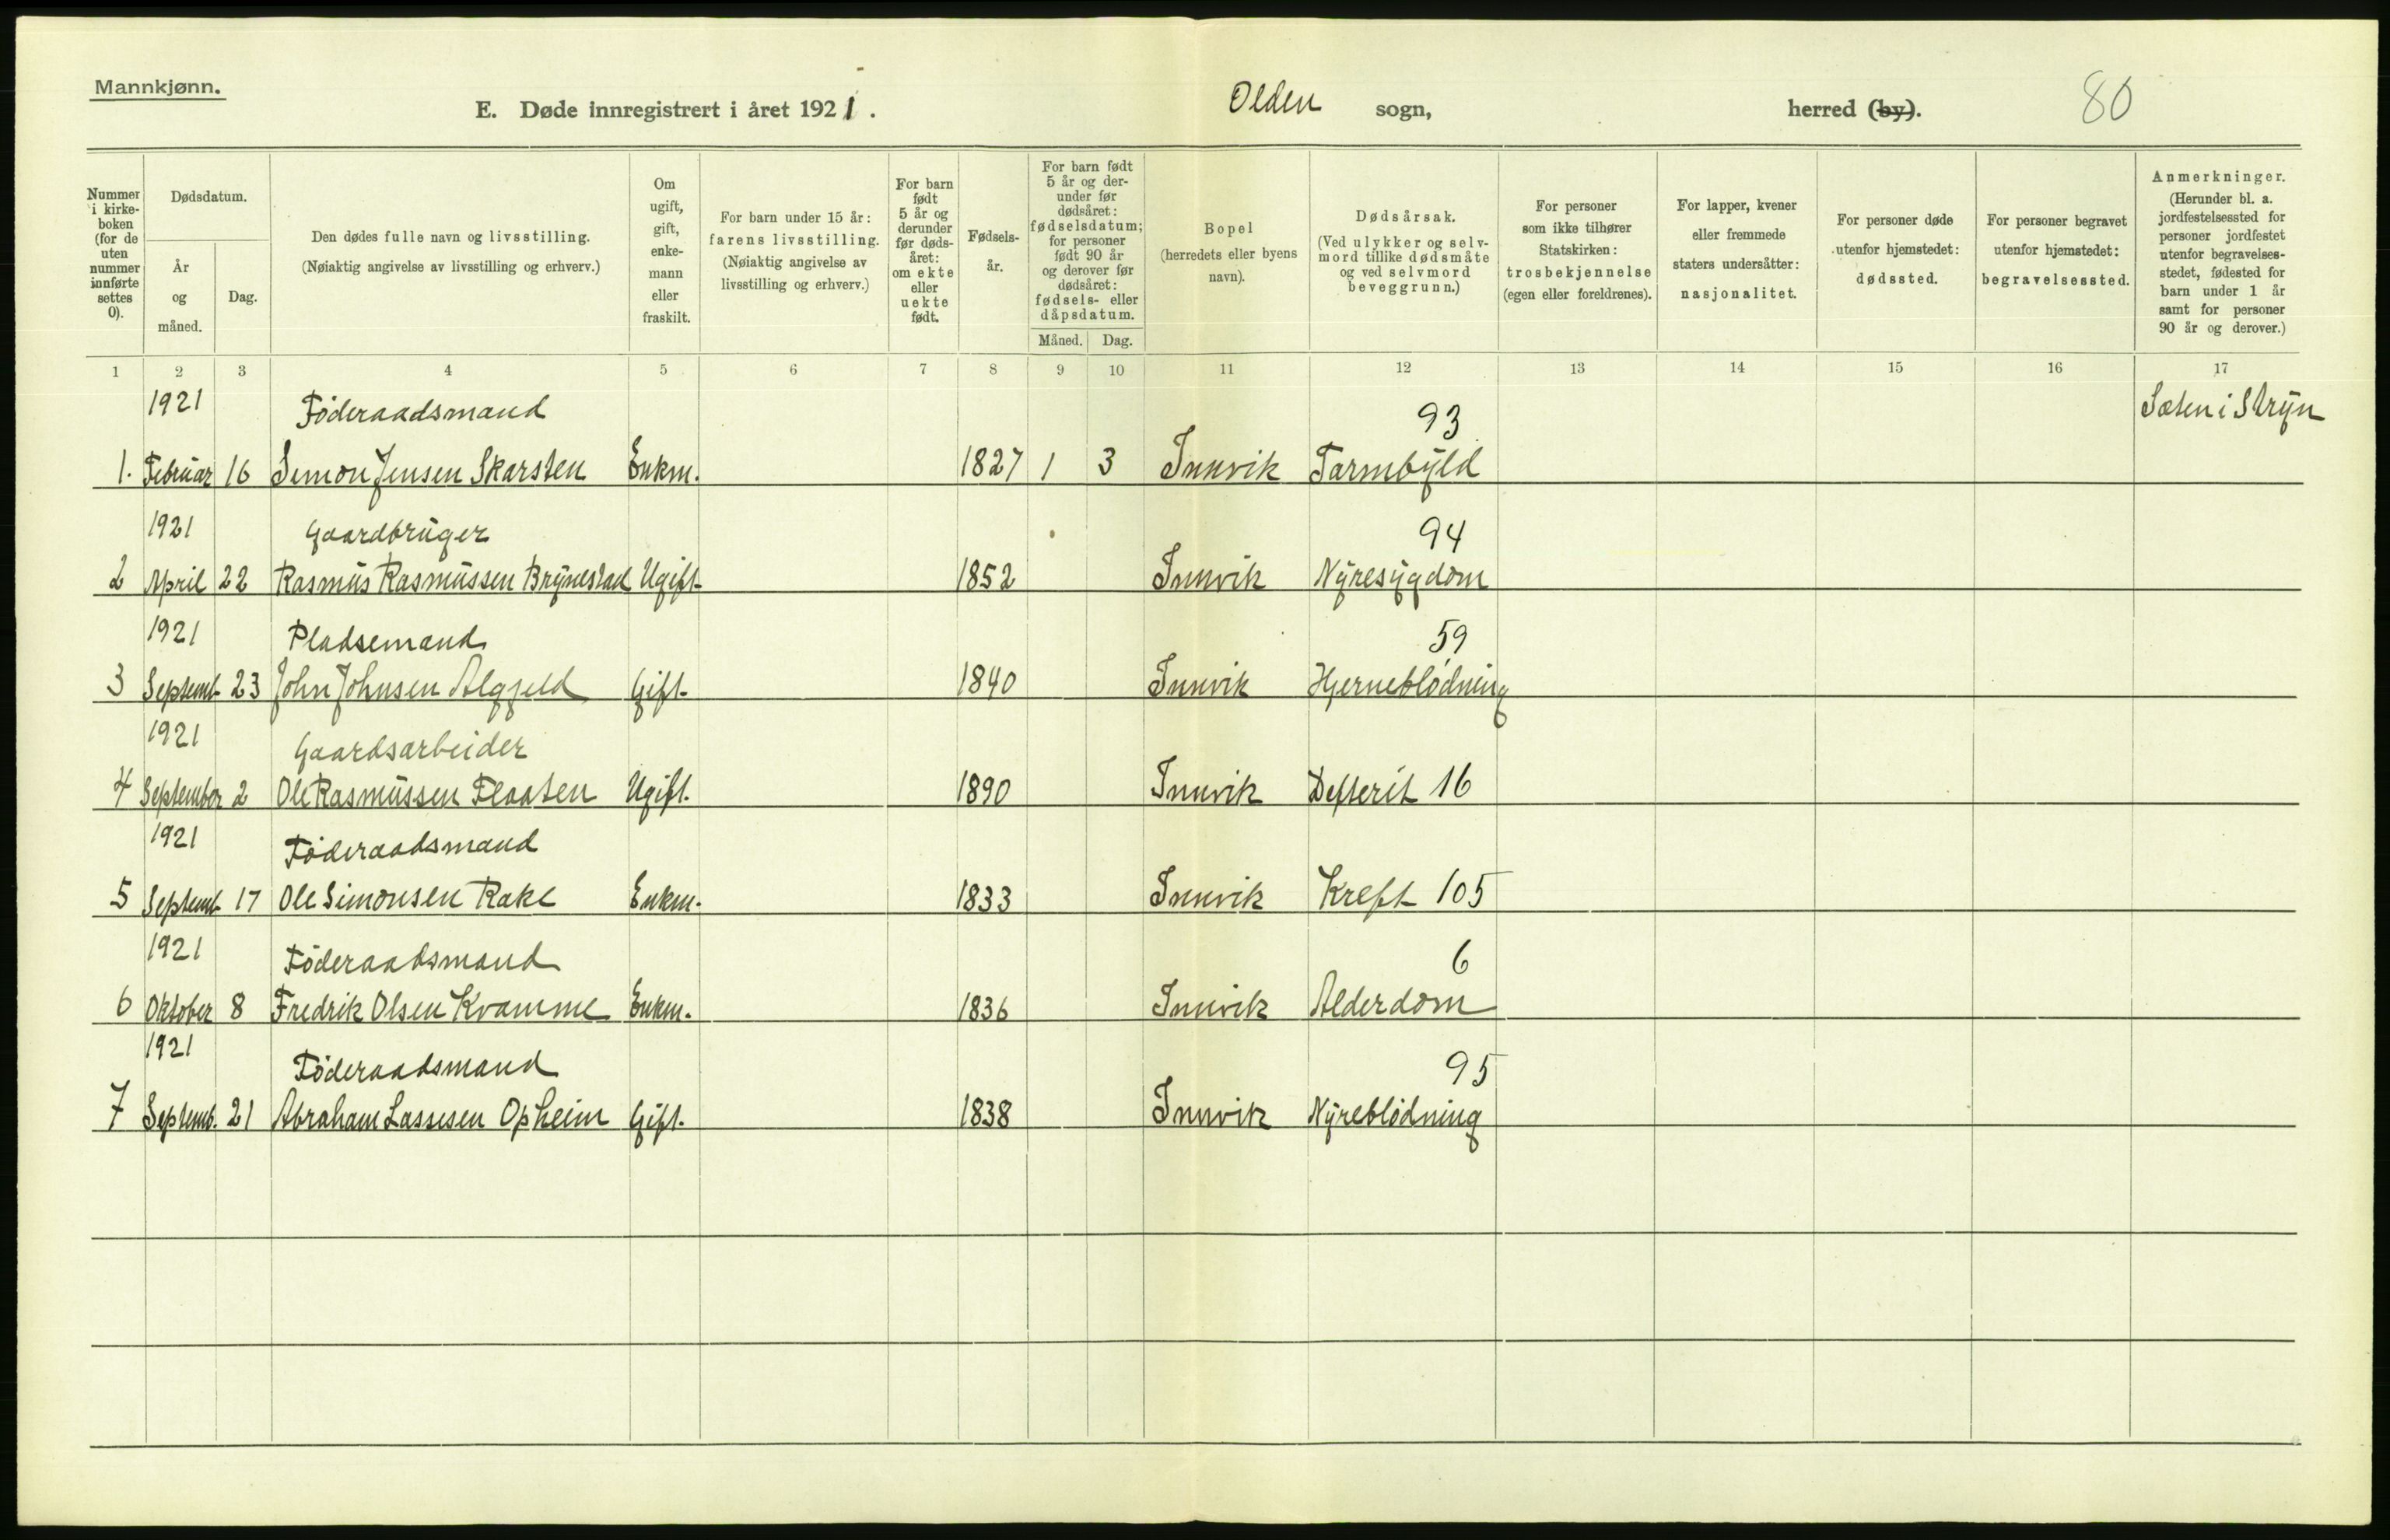 Mannkjønn.
E. Døde innregistrert i året 1921. Olden sogn, herred (by). 80
Nummer i kirke-boken (for de uten nummer innførte settes 0).
Dødsdatum.
År og måned.
Dag.
Den dødes fulle navn og livsstilling.
(Nøiaktig angivelse av livsstilling og erhverv.)
Om ugift, gift, enke-mann eller fraskilt.
For barn under 15 år:
farens livsstilling.
(Nøiaktig angivelse av
livsstilling og erhverv.)
For barn født 5 år og derunder før døds-året: om ekte eller uekte født.
Fødsels-år.
For barn født 5 år og der-under før dødsåret: fødselsdatum; for personer født 90 år og derover før dødsåret: fødsels- eller dåpsdatum.
Måned. Dag.
Bopel
(herredets eller byens
navn).
Dødsårsak.
(Ved ulykker og selv-
mord tillike dødsmåte
og ved selvmord
beveggrunn.)
For personer
som ikke tilhører
Statskirken:
trosbekjennelse
(egen eller foreldrenes).
For lapper, kvener
eller fremmede
staters undersåtter:
nasjonalitet.
For personer døde
utenfor hjemstedet:
dødssted.
For personer begravet
utenfor hjemstedet:
begravelsessted.
Anmerkninger.
(Herunder bl. a.
jordfestelsessted for
personer jordfestet
utenfor begravelses-
stedet, fødested for
barn under 1 år
samt for personer
90 år og derover.)
1 2 3 4 5 6 7 8 9 10 11 12 13 14 15 16 17
1921 Föderaadsmand 93 Sæten i Stryn
1. Februar 16 Simon Jensen Skarsten Enkm. 1827 1 3 Innvik Tarmbyld
1921 Gaardbruger 94
2 April 22 Rasmus Rasmussen Brynestad Ugift 1852 Innvik Nyresygdom
1921 Pladsemand 59
3 Septemb. 23 John Johnsen Algjeld Gift. 1840 Innvik Hjerneblödning
1921 Gaardsarbeider
4 September 2 Ole Rasmussen Flaaten Ugift. 1890 Innvik Defterit 16
1921 Föderaadsmand
5 Septemb. 17 Ole Simonsen Rake Enkm. 1833 Innvik Kreft 105
1921 Föderaadsmand 6
6 Oktober 8 Fredrik Olsen Kvamme Enkm. 1836 Innvik Alderdom
1921 Föderaadsmand 95
7 Septemb. 21 Abraham Lassesen Opheim Gift. 1838 Innvik Nyreblödning